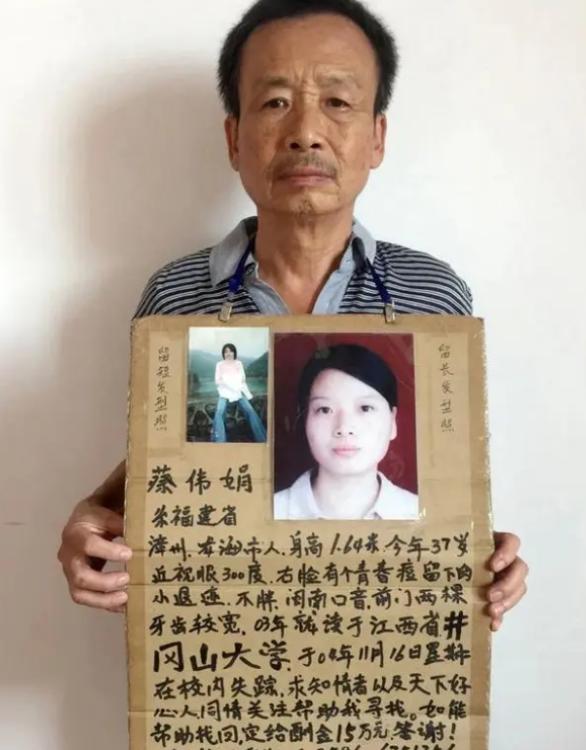 留短发型照
留长发型照
蔡伟娟
系福建省
漳州.龙海市人.身高1.64米.今年37岁
近视眼300度.右脸有个青春痘留下的
小退迹.不胖.闽南口音.前门两棵
牙齿较宽.03年就读于江西省井
冈山大学.于04年11月16日星期
在校内失踪.求知情者以及天下好
心人同情关注帮助我寻找.如能
帮助找回.定给酬金15万元.答谢!